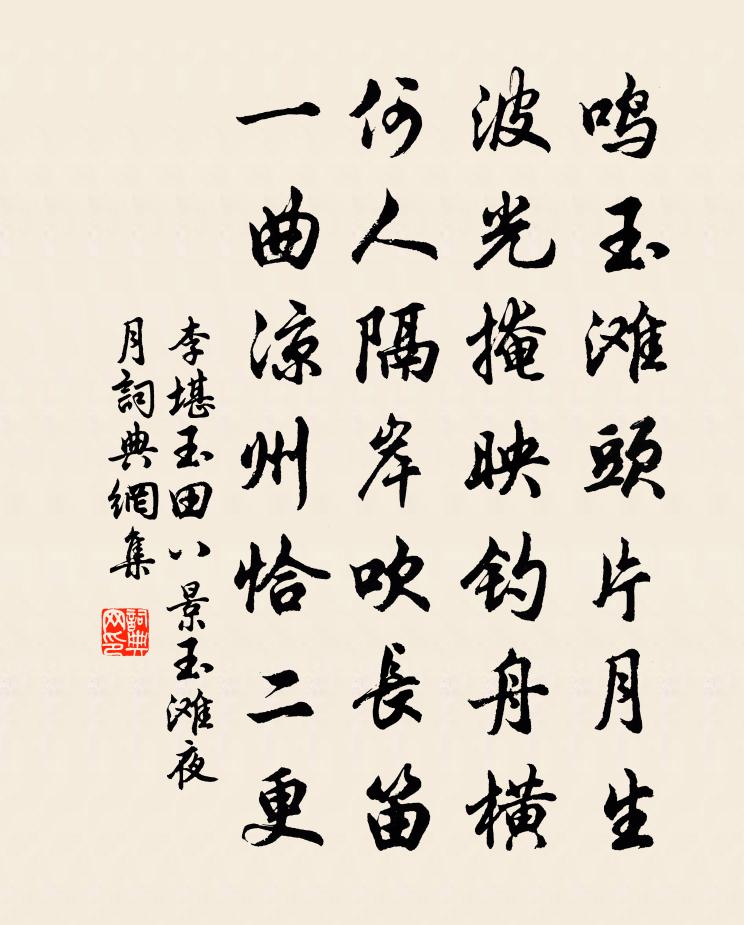 鸣玉滩頭片月生
波光掩映钓舟横
何人隔岸吹長笛
一曲凉州恰二更
李堪玉田八景玉滩夜
月詞典網集
詞典网印